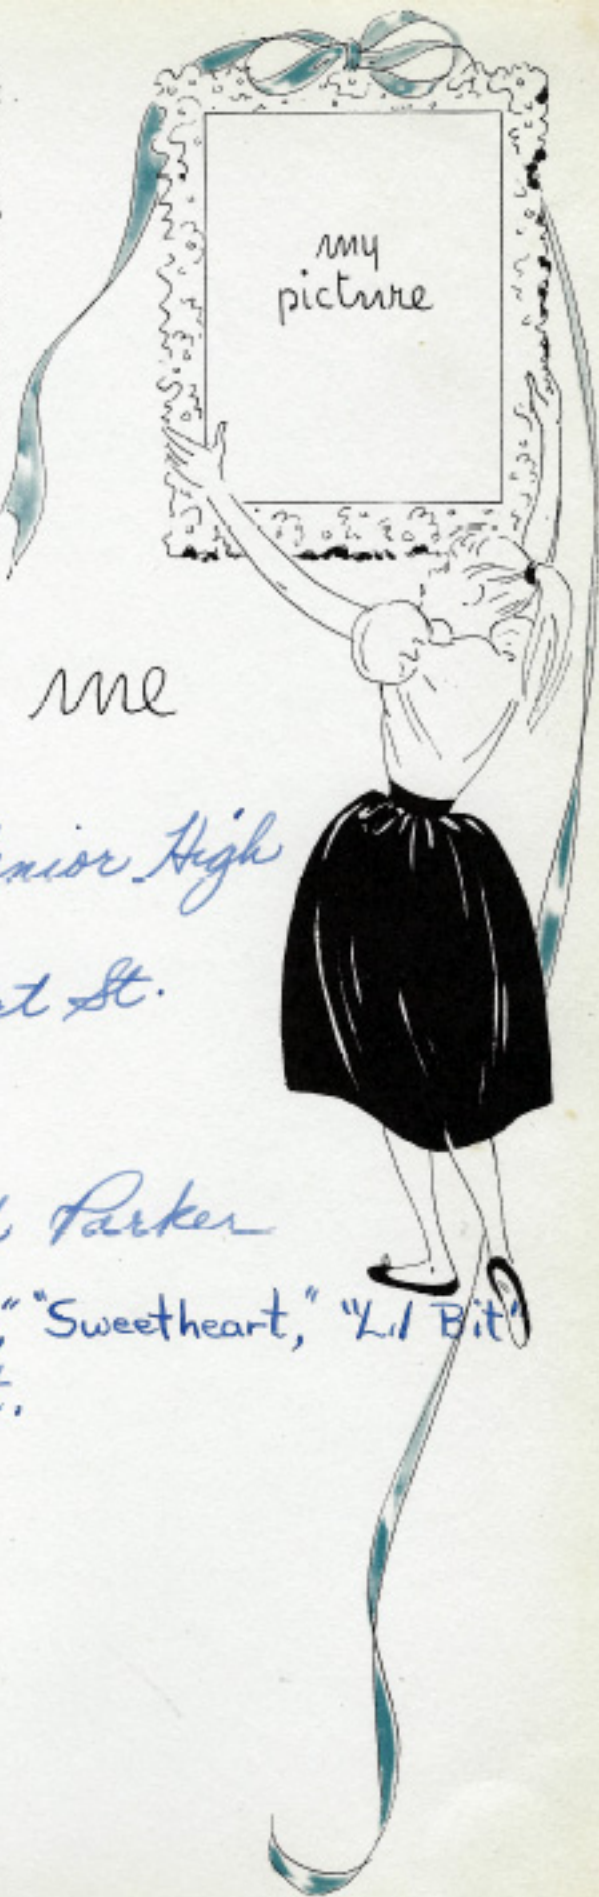 my
picture
me
nior High
St.
Parker
" "Sweetheart," "Lil Bit"
t.